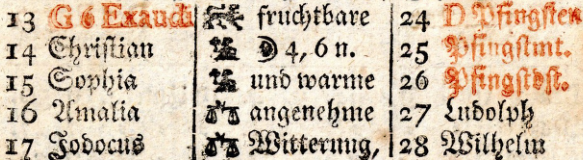 13 G 6 Exaudi fruchtbare 24 D Pfingsten
14 Christian D 4, 6 n. 25 Pfingstmt.
15 Sophia und warme 26 Pfingstdst.
16 Amalia angenehme 27 Ludolph
17 Jodocus Witterung, 28 Wilhelm